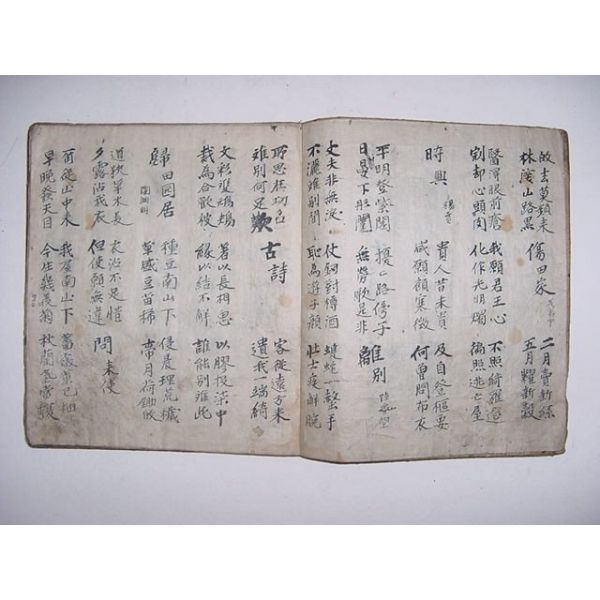 故去莫頻來 二月賣新絲
林深山路黑 傷田家 聶夷中 五月糶新穀
醫得眼前瘡 我願君王心 不照綺羅筵
剜却心頭肉 化作光明燭 徧照逃亡屋
時興 楊賁 貴人昔未貴 及自登樞要
咸願顧寒微 何曾問布衣
平明登紫閣 擾々路傍子 離別 陸龜蒙
日晏下彤闈 無勞歌是非
丈夫非無淚 仗劍對樽酒 蝮蛇一螫手
不灑離別間 恥為遊子顏 壯士疾解腕
所思在功名 古詩 客從遠方來
離別何足歎 遺我一端綺
文彩雙鴛鴦 著以長相思 以膠投漆中
裁為合歡被 緣以結不解 誰能別離此
歸田園居 陶淵明 種豆南山下 侵晨理荒穢
草盛豆苗稀 帶月荷鋤歸
道狹草木長 衣沾不足惜 問來使
夕露沾我衣 但使願無違
爾從山中來 我屋南山下 薔薇葉已抽
早晚發天目 今生幾叢菊 秋蘭氣當馥